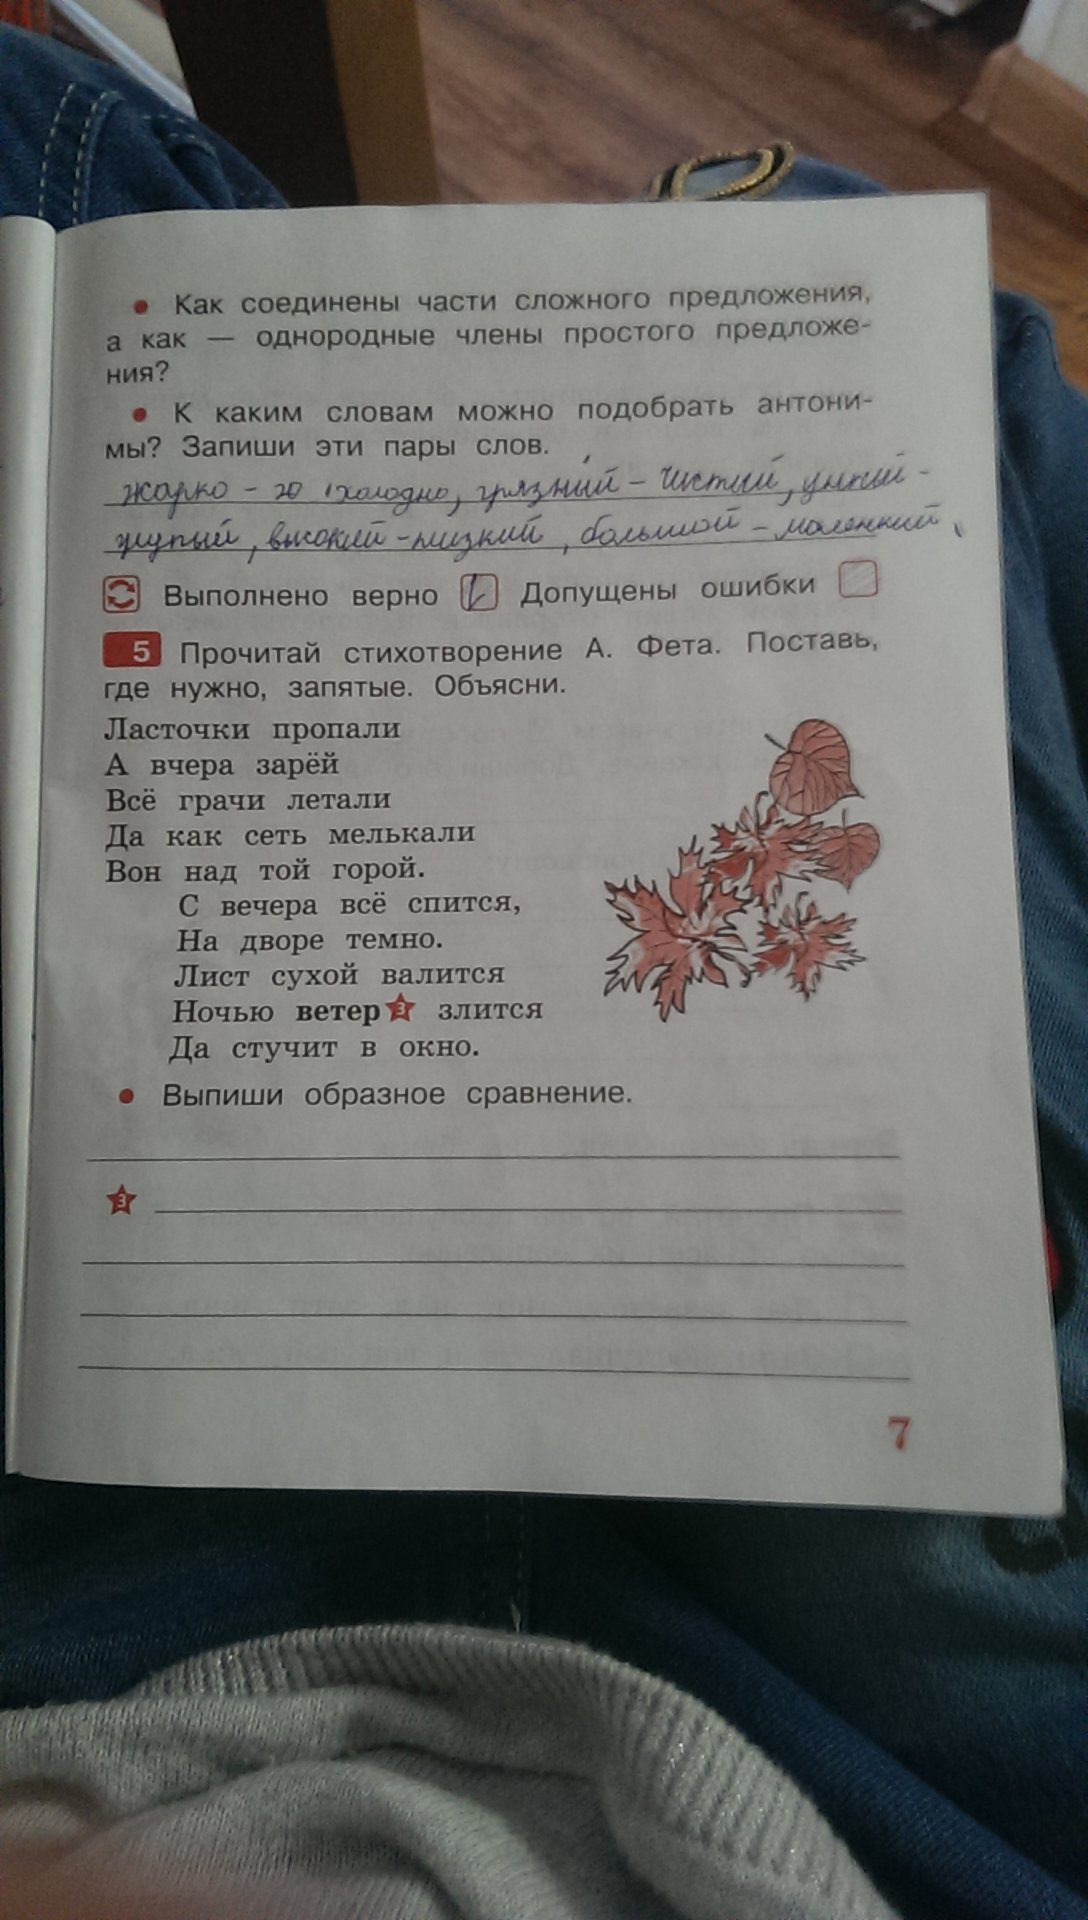 • Как соединены части сложного предложения,
а как — однородные члены простого предложе-
ния?
• К каким словам можно подобрать антони-
мы? Запиши эти пары слов.
жарко - холодно, грязный - чистый, умный -
глупый, высокий - низкий, большой - маленкий,
Выполнено верно Допущены ошибки
5 Прочитай стихотворение А. Фета. Поставь,
где нужно, запятые. Объясни.
Ласточки пропали
А вчера зарёй
Всё грачи летали
Да как сеть мелькали
Вон над той горой.
С вечера всё спится,
На дворе темно.
Лист сухой валится
Ночью ветер 3 злится
Да стучит в окно.
• Выпиши образное сравнение.
3
7